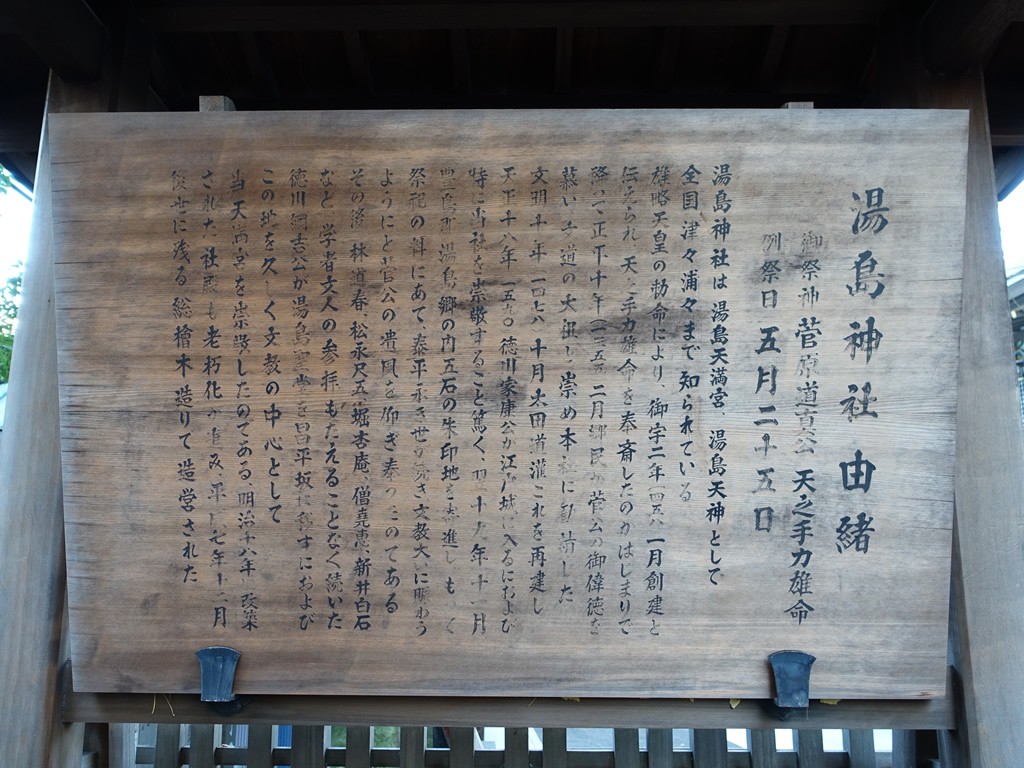 湯島神社由緒
御祭神 菅原道真公 天之手力雄命
例祭日 五月二十五日
湯島神社は 湯島天満宮、湯島天神として
全国津々浦々まで知られている
雄略天皇の勅命により、御宇二年 四五八 一月創建と
伝えられ、天之手力雄命を奉斎したのがはじまりで
降って正平十年(一三五五)二月郷民が菅公の御偉徳を
慕い 文道の大祖と崇め本社に勧請した
文明十年 一四七八 十月太田道灌これを再建し
天正十八年 一五九〇 徳川家康公が江戸城に入るにおよび
特に当社を崇敬すること篤く 翌十九年十一月
豊島郡湯島郷の内五石の朱印地を寄進し もって
祭祀の料にあて、泰平永き世が続き文教大いに賑わう
ようにと菅公の遺風を仰ぎ奉ったのである
その後 林道春、松永尺五、堀杏庵、僧堯恵、新井白石
など 学者文人の参拝もたえることなく続いた
徳川綱吉公が湯島聖堂を昌平坂に移すにおよび
この地を久しく文教の中心として
当天満宮を崇敬したのである 明治十八年 改築
された社殿も老朽化が進み 平成七年十二月
後世に残る総檜木造りで造営された